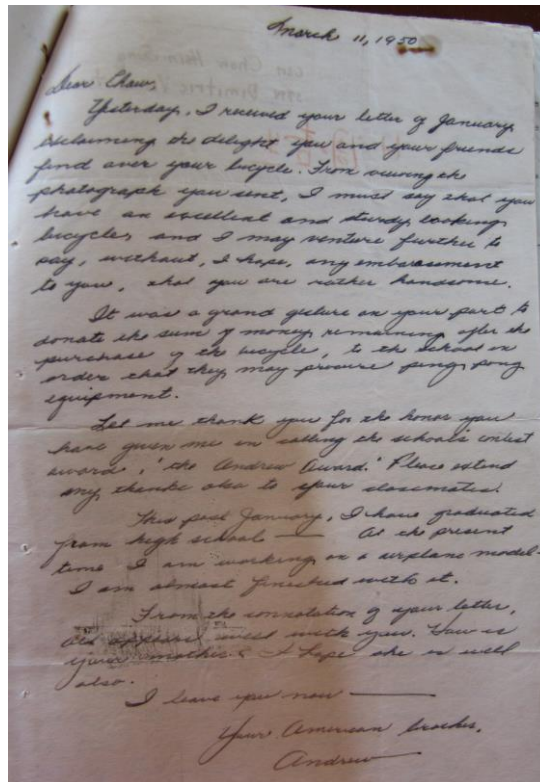 March 11, 1950
Dear Chaw,
Yesterday, I received your letter of January
exclaiming the delight you and your friends
find over your bicycle. From viewing the
photograph you sent, I must say that you
have an excellent and sturdy looking
bicycle, and I may venture further to
say, without, I hope, any embarassment
to you, that you are rather handsome.
It was a grand gesture on your part to
donate the sum of money, remaining after the
purchase of the bicycle, to the school in
order that they may procure ping pong
equipment.
Let me thank you for the honor you
have given me in calling the schools contest
award, "the Andrew Award." Please extend
my thanks also to your classmates.
This past January, I have graduated
from high school — At the present
time I am working on a airplane model-
I am almost finished with it.
From the connotation of your letter,
all well with you. How is
your mother? I hope she is well
also.
I leave you now —
Your American brother,
Andrew